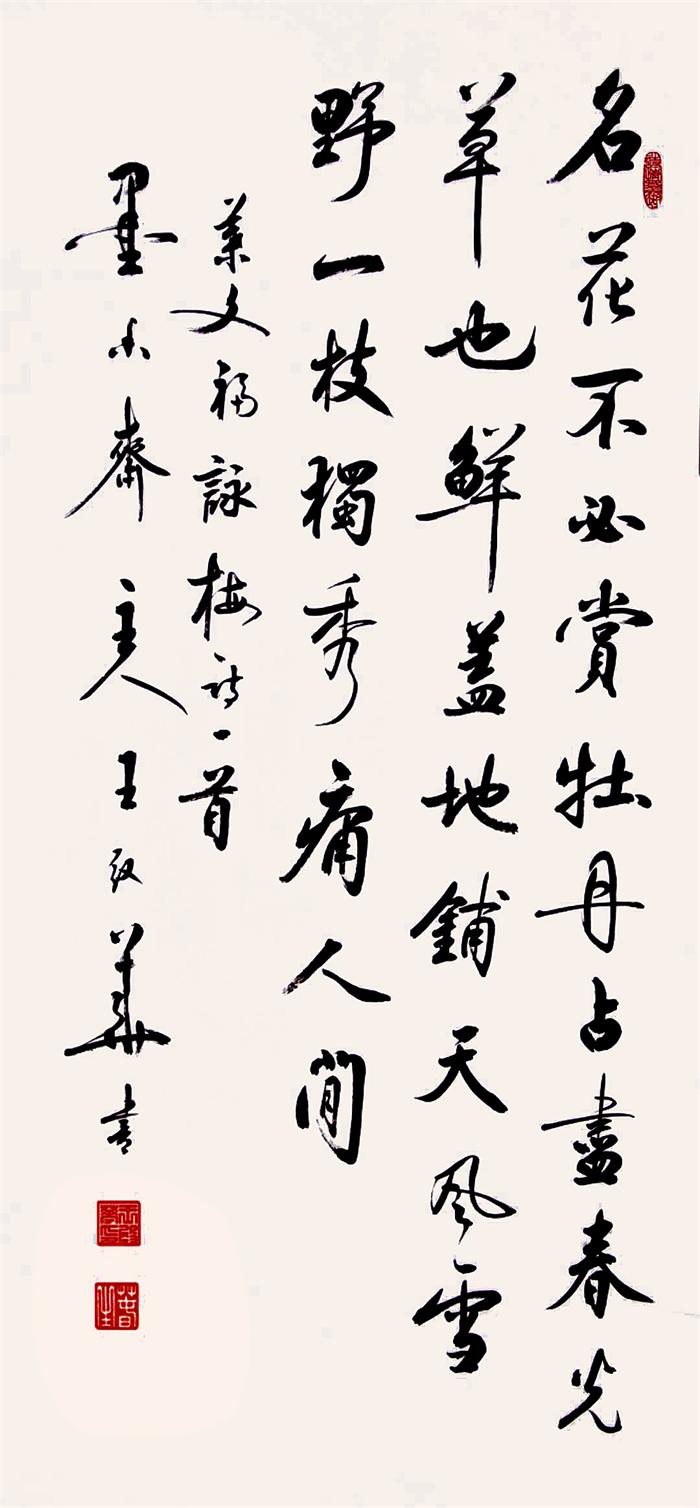 名花不必賞牡丹占盡春光
草也鮮蓋地鋪天風雪
野一枝獨秀痛人间
葉文福詠梅诗一首
墨香齋主人王政華書